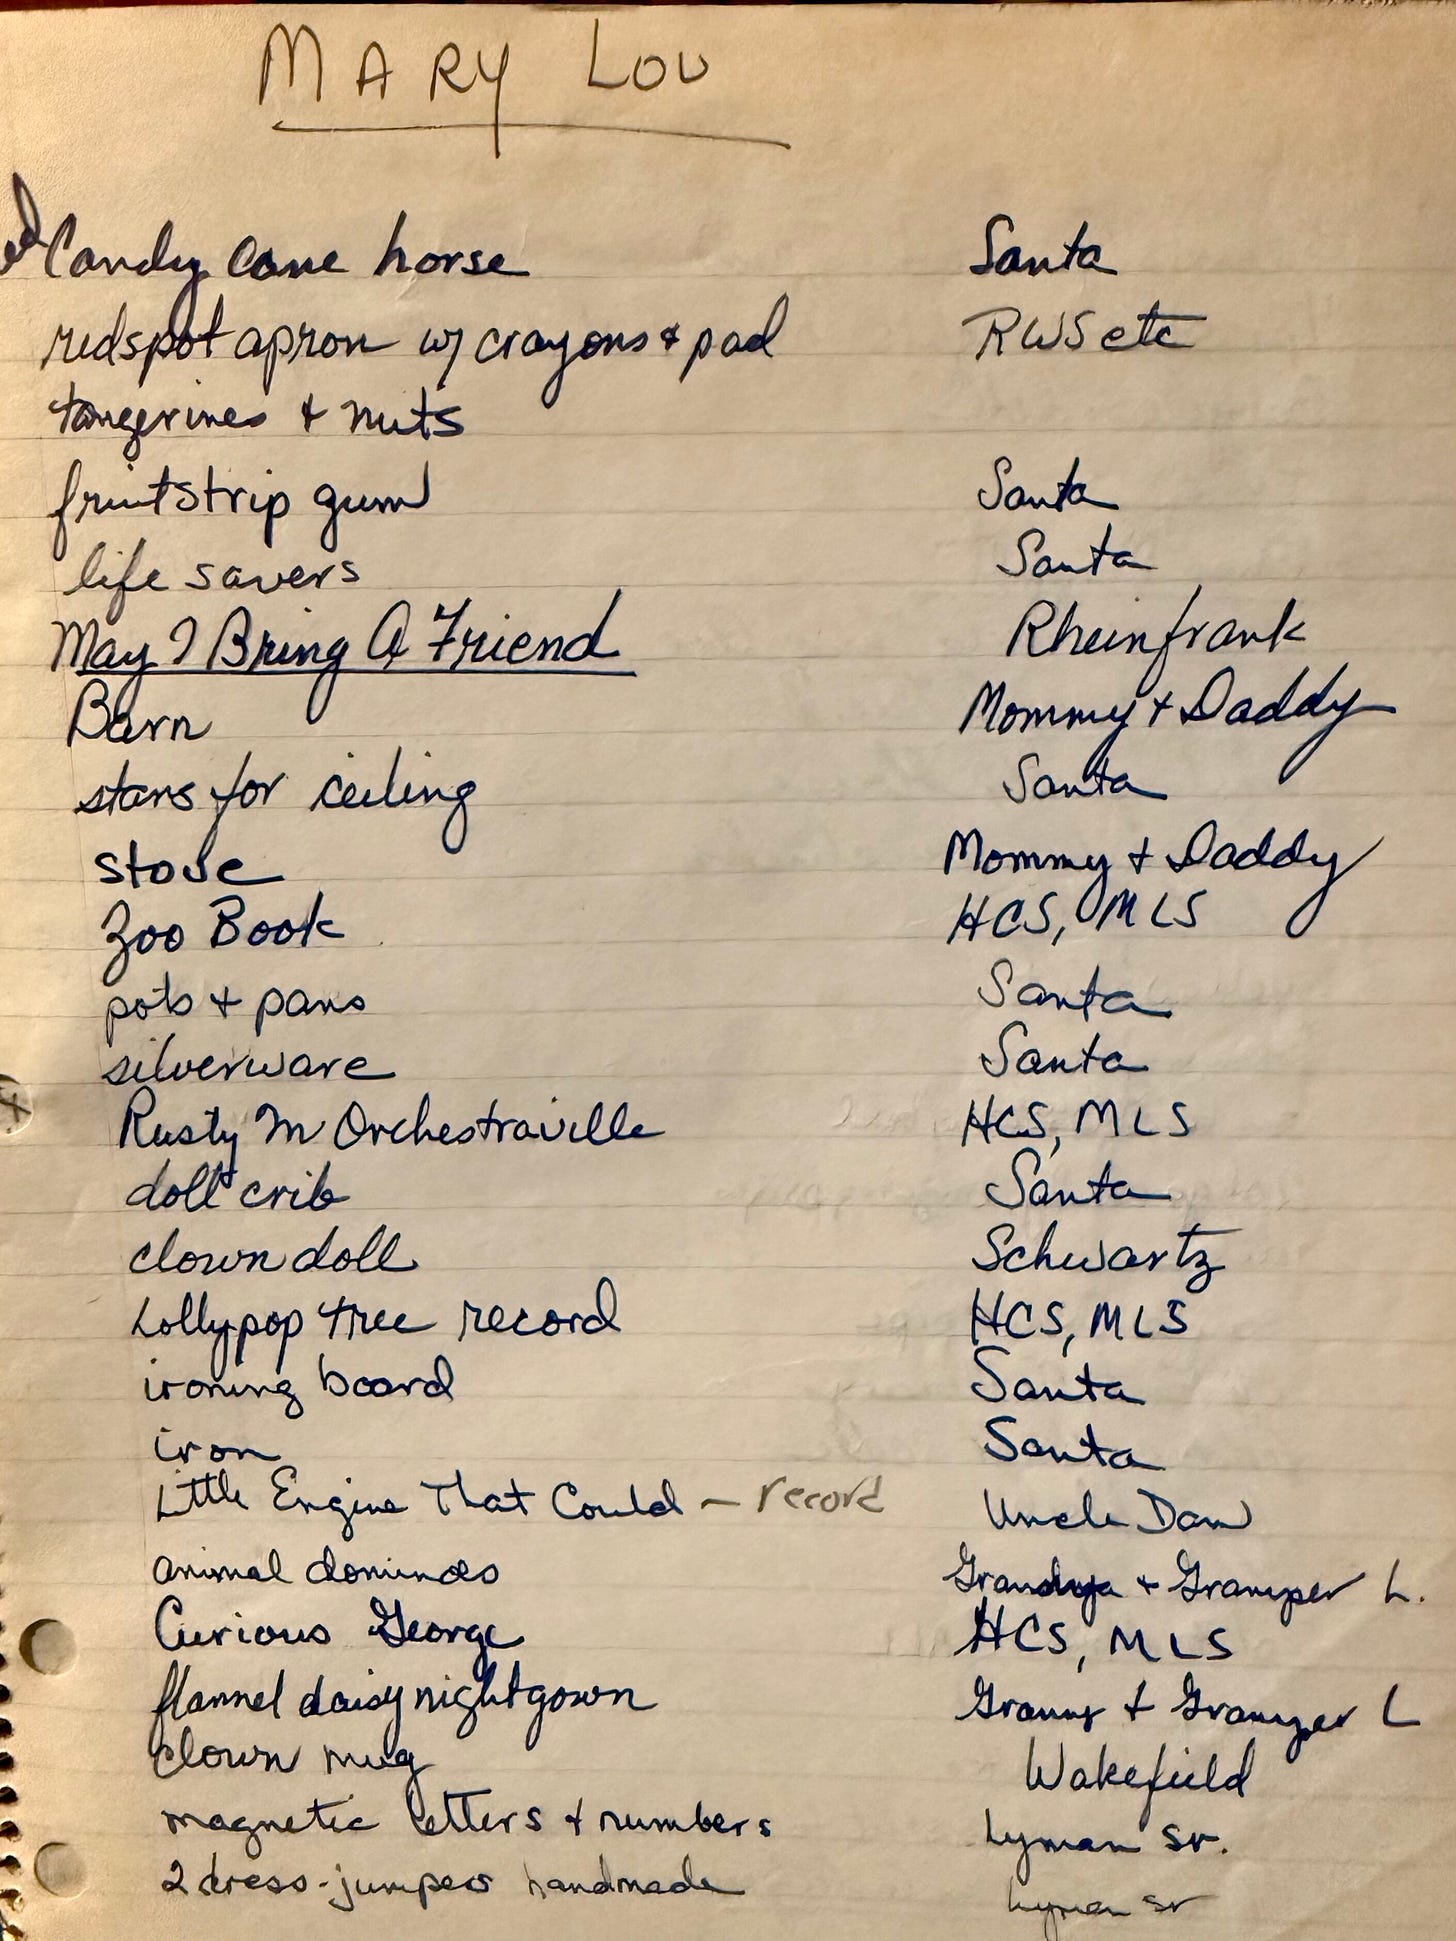 MARY LOU
Candy Cane horse Santa
redspot apron w/ crayons + pad RWS etc
tangerines + nuts
fruitstrip gum Santa
life savers Santa
May I Bring A Friend Rheinfrank
Barn Mommy + Daddy
stars for ceiling Santa
stove Mommy + Daddy
Zoo Book HCS, MLS
pots + pans Santa
silverware Santa
Rusty In Orchestraville HCS, MLS
doll crib Santa
clown doll Schwartz
Lollypop tree record HCS, MLS
ironing board Santa
iron Santa
Little Engine That Could - record Uncle Dan
animal dominoes + Gramper L.
Curious George HCS, MLS
flannel daisy nightgown Granny + Gramper L
clown mug Wakefield
magnetic letters + numbers Lyman Sr.
2 dress-jumpers handmade Lyman Sr